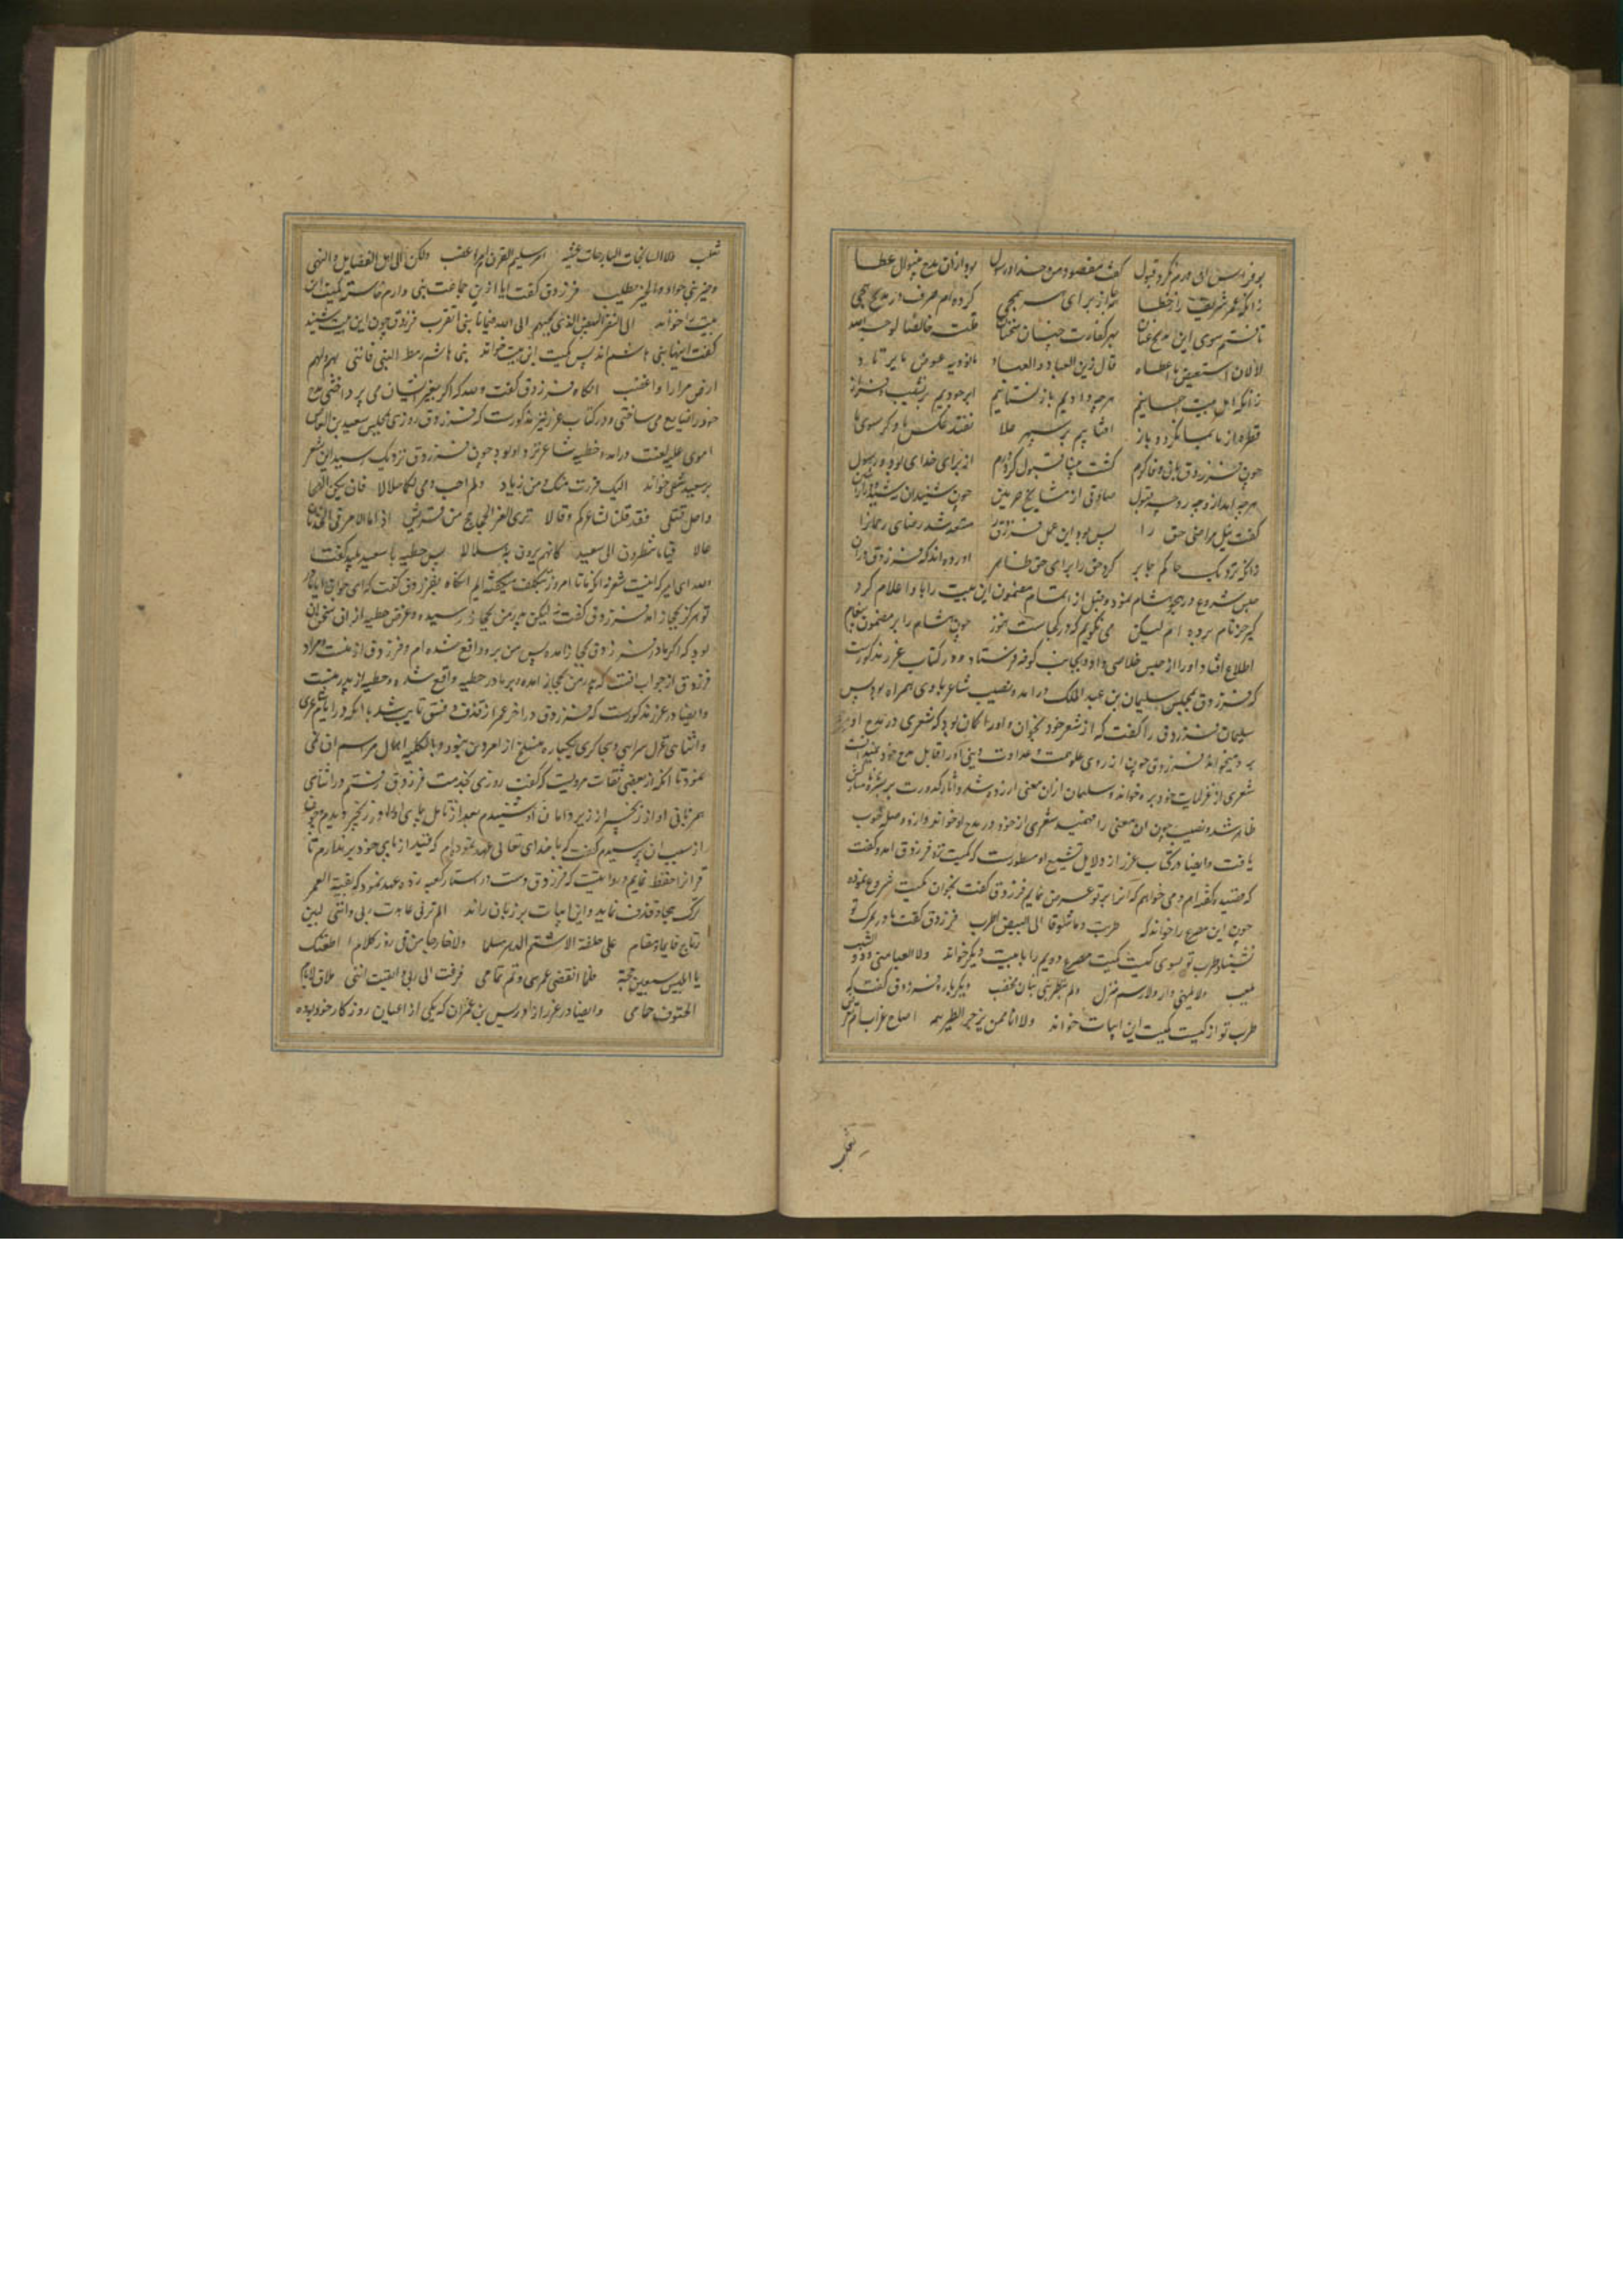 بوفراس آن درم نکرد قبول گفت مقصود من خدا و رسول بود ازان مدح نه نوال عطا
زانکه عمر شریف را ز خطا همه از برای سر همجی کرده ام صرف در مدیح و هجی
تافتم سوی این مدیح عنان بهر کفارت چنان سخنان قلت خالصا لوجه الله
لا لان استعیض ما اعطاه قال زین العباد و العباد ما نؤدیه عوض لا یرتاد
زانکه اهل بیت احسانیم هرچه دادیم باز نستانیم ابر جودیم بر نشیب و فراز
قطره از ما بما نگردد باز آفتابیم بر سپهر علا نفتد عکس ما دگر سوی ما
چون فرزدق بآن وفا و کرم گشت بینا قبول کرد درم از برای خدای بود و رسول
هرچه آمد ازو چه رد چه قبول صادقی از مشایخ حرمین چون شنید آن
گفت نیل مراضی حق را بس بود این عمل فرزدق را مستعد شد رضای رحمانرا
زانکه نزدیک حاکم جابر کرد حق را برای حق ظاهر آورده اند که فرزدق دران
حبس شروع در هجو هشام نموده و قبل از اتمام مضمون این بیت را باو اعلام کرد
گیر جز نام برده ام لیکن می نگویم که در کجاست هنوز چون هشام را بر مضمون پیغام
اطلاع افتاد او را از حبس خلاصی داد و بجانب کوفه فرستاد و در کتاب غرر مذکورست
که فرزدق بمجلس سلیمان بن عبد الملک در آمد و نصیب شاعر با وی همراه بود پس
سلیمان فرزدق را گفت که از شعر خود بخوان و او را گمان بود که شعری در مدح او
بر میخواند فرزدق چون از روی علو همت و عداوت دینی او را قابل مدح خود نمیدانست
شعری از غزلیات خود برو خواند و سلیمان ازان معنی آزرده شد و آثار کدورت بر بشره
ظاهر شد و نصیب چون آن معنی را فهمید شعری از خود در مدح او خواند و ازو صله خوب
یافت و ایضا در کتاب غرر از دلایل تشیع او مسطورست که کمیت نزد فرزدق آمد و گفت
که قصیده گفته ام و می خواهم که آنرا بر تو عرض نمایم فرزدق گفت بخوان کمیت شروع نموده
چون این مصرع را خواند که طربت و ما شوقا الی البیض اطرب فرزدق گفت مادر بمرگ تو
نشیناد طرب تو بسوی کیست کمیت مصرع دویم را با بیت دیگر خواند ولا لعبا منی و ذو الشیب
یلعب ولا یلهنی دار ولا رسم منزل ولم یتطربنی بنان مخضب دیگر باره فرزدق گفت که
طرب تو از کیست کمیت این ابیات خواند ولا انا ممن یزجر الطیر همه اصاح غراب ام تعرض
ثعلب
ثعلب ولا السانحات البارحات عشیة امر سلیم القرن ام مر اعضب ولکن الی اهل الفضایل و النهی
و خیر بنی حواء و الخیر یطلب فرزدق گفت آیا ازین جماعت بنی دارم خواسته کمیت این
بیت را خواند الی النفر البیض الذین بحبهم الی الله فیما نابنی اتقرب فرزدق چون این بیت شنید
گفت اینها بنی هاشم اند پس کمیت این بیت خواند بنی هاشم رهط النبی فاننی بهم ولهم
ارضی مرارا و اغضب آنگاه فرزدق گفت والله که اگر بغیر ایشان می پرداختی مدح
خود را ضایع می ساختی و در کتاب غرر نیز مذکورست که فرزدق روزی بمجلس سعید بن العاص
اموی علیه لعنت در آمد و حطیه شاعر نزد او بود چون فرزدق نزدیک رسید این شعر
بر سعید شقی خواند الیک فررت منک و من زیاد ولم احسب دمی لکما حلالا فان یکن الهجا
و احل قتلی فقد قلنا لشاعرکم و قالا تری الغر الجحاجح من قریش اذا ما الامر فی الحدثان
عالا قیاما ینظرون الی سعید کانهم یرون به هلالا پس حطیه با سعید پلید گفت
والله ای امیر که اینست شعر نه آنکه ما تا امروز بتکلف میگفته ایم آنگاه بفرزدق گفت که ای جوان آیا مادر
تو هرگز بحجاز آمد فرزدق گفت نه لیکن پدر من بحجاز رسیده و غرض حطیه ازان سخن آن
بود که اگر مادر فرزدق بحجاز آمده پس من برو واقع شده ام و فرزدق از منست و مراد
فرزدق از جواب آنست که پدر من بحجاز آمده و بر مادر حطیه واقع شده و حطیه از پدر منست
و ایضا در غرر مذکورست که فرزدق در آخر عمر از قذف و فسق تایب شد با آنکه در ایام شاعری
و اثنای غزل سرایی و هجاگری بیکباره منسلخ از امر دین نبود و بالکلیه اهمال مراسم آن نمی
نمود تا آنکه از بعضی ثقات مرویست که گفت روزی بخدمت فرزدق رفتم در اثنای
همزبانی آواز زنجیر از زیر دامان او شنیدم بعد از تامل بپای او زنجیر دیدم چون
از سبب آن پرسیدم گفت که با خدای تعالی عهد نموده ام که قید از پای خود بر ندارم تا
قرآنرا حفظ نمایم و روایتست که فرزدق دست در استار کعبه زده عهد نمود که بقیة العمر
ترک هجا و قذف نماید و این ابیات بر زبان راند الم ترنی عاهدت ربی و اننی لبین
رتاج قایما و مقام علی حلفة لا اشتم الدهر مسلما ولا خارجا من فی زور کلام اطعتک
یا ابلیس سبعین حجة فلما انقضی عمری و تم تمامی فزعت الی ربی و ایقنت اننی ملاق لایام
الحتوف حمامی و ایضا در غرر از ادریس بن عمران که یکی از اعیان روزگار خود بوده